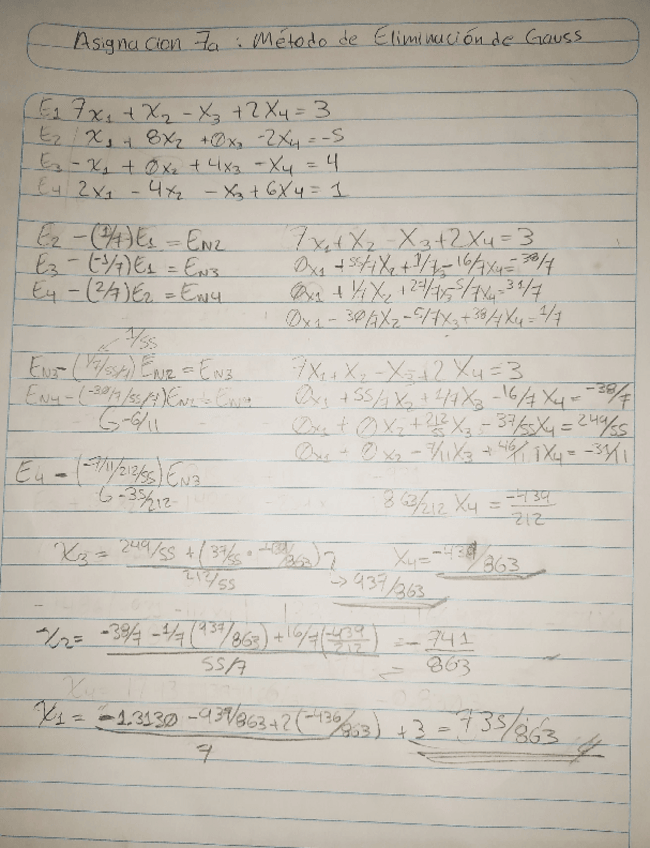 Asignacion 7a : Método de Eliminación de Gauss
E1 7x1 + x2 - x3 + 2x4 = 3
E2 x1 + 8x2 + 0x3 - 2x4 = -5
E3 - x1 + 0x2 + 4x3 - x4 = 4
E4 2x1 - 4x2 - x3 + 6x4 = 1
E2 - (1/7)E1 = EN2 7x1 + x2 - x3 + 2x4 = 3
E3 - (-1/7)E1 = EN3 0x1 + 55/7x2 + 1/7x3 - 16/7x4 = -38/7
E4 - (2/7)E2 = EN4 0x1 + 1/7x2 + 27/7x3 - 5/7x4 = 31/7
0x1 - 30/7x2 - 5/7x3 + 38/7x4 = 1/7
1/55
EN3 - (1/7/55/7)EN2 = EN3 7x1 + x2 - x3 + 2x4 = 3
EN4 - (-30/7/55/7)EN2 = EN 0x1 + 55/7x2 + 1/7x3 - 16/7x4 = -38/7
-6/11 0x1 + 0x2 + 212/55x3 - 37/55x4 = 249/55
0x1 + 0x2 - 7/11x3 + 46/11x4 = -31/11
E4 - (-7/11/212/55)EN3
-35/212 863/212 x4 = -439/212
x3 = 249/55 + (37/55 · -439/863) / 212/55 → 937/863 x4 = -439/863
x2 = -38/7 - 1/7(937/863) + 16/7(-439/212) / 55/7 = -741/863
x1 = -1.3130 - 937/863 + 2(-436/863) + 3 / 7 = 735/863